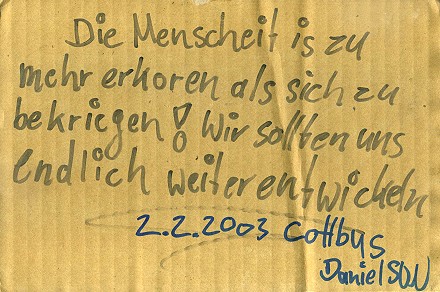 Die Menscheit is zu
mehr erkoren als sich zu
bekriegen! Wir sollten uns
endlich weiterentwickeln
2.2.2003 Cottbus
Daniel